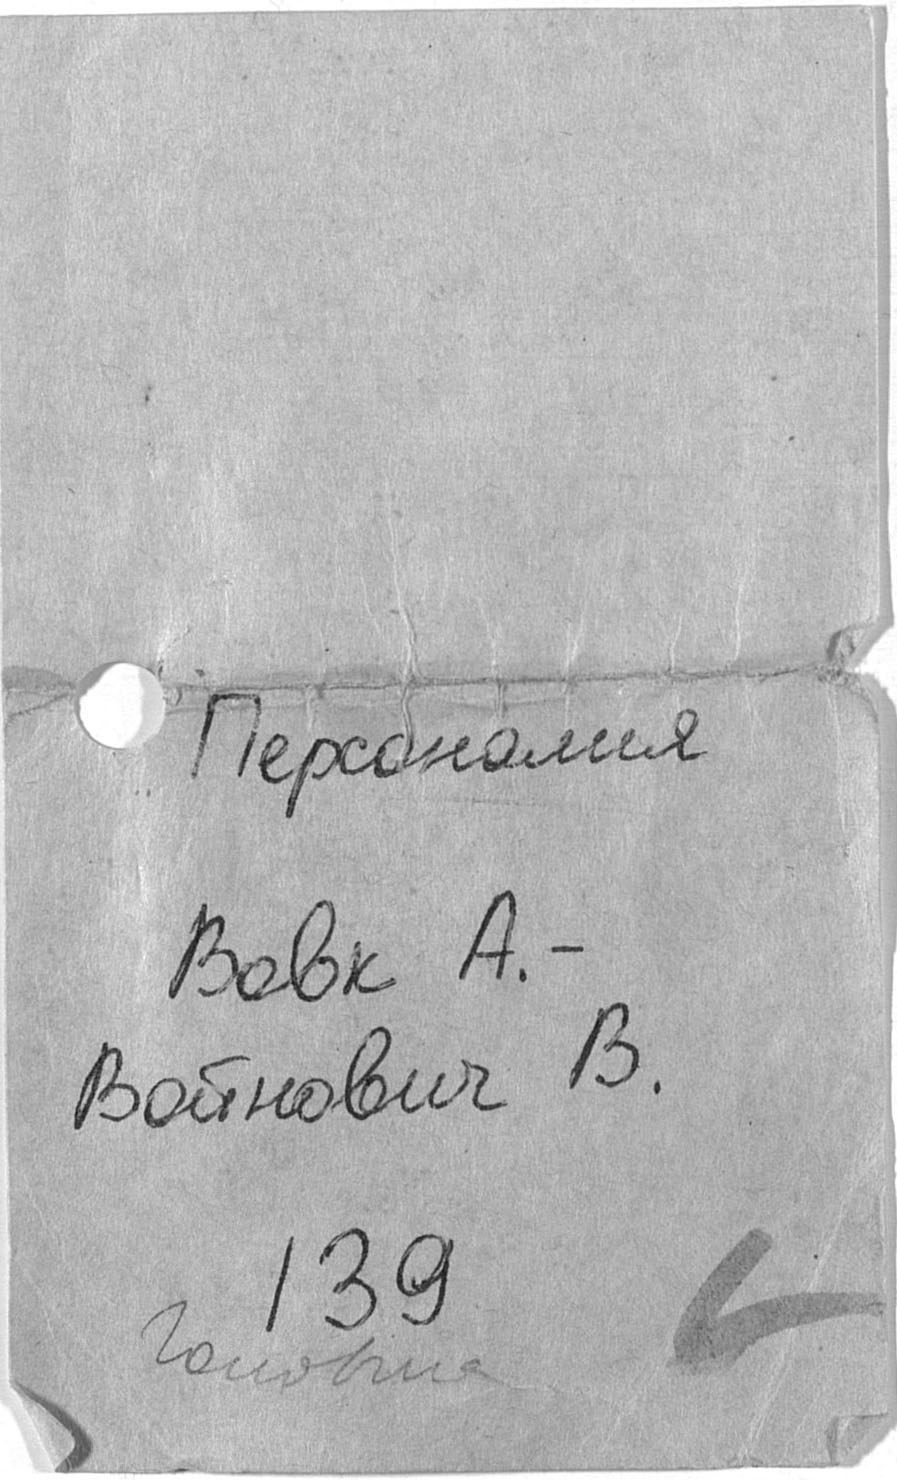 Персоналия
Вовк А.-
Войнович В.
139